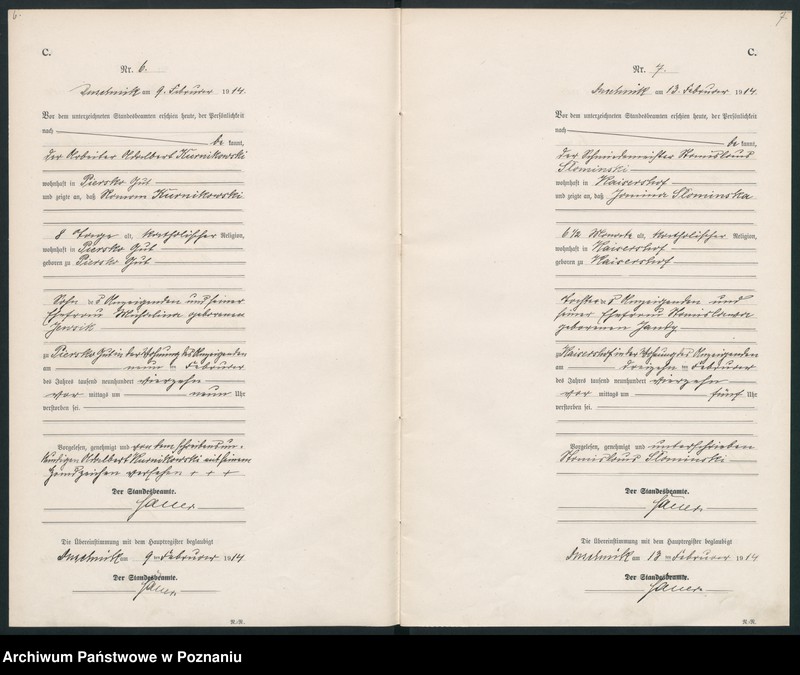 6.
C.
Nr. 6.
Duschnik am 9. Februar 1914
Vor dem unterzeichneten Standesbeamten erschien heute, der Persönlichkeit
nach
be kannt,
der Arbeiter Adalbert Kurnikowski
wohnhaft in Piersko Gut
und zeigte an, daß Roman Kurnikowski
8 Tage alt, katholischer Religion,
wohnhaft in Piersko Gut
geboren zu Piersko Gut
Sohn des Anzeigenden und seiner
Ehefrau Michalina geborenen
zu Piersko Gut in der Wohnung des Anzeigenden
am neun ten Februar
des Jahres tausend neunhundert vierzehn
vor mittags um neun Uhr
verstorben sei.
Vorgelesen, genehmigt und von dem schreibensun-
kundigen Adalbert Kurnikowski mit seinem
Handzeichen versehen + + +
Der Standesbeamte.
Die Übereinstimmung mit dem Hauptregister beglaubigt
Duschnik am 9ten Februar 1914
Der Standesbeamte.
R.-R.
7.
C.
Nr. 7.
Duschnik am 13. Februar 1914.
Vor dem unterzeichneten Standesbeamten erschien heute, der Persönlichkeit
nach
be kannt,
der Schmiedemeister Stanislaus
Slominski
wohnhaft in Kaisershof
und zeigte an, daß Janina Slominska
6 1/2 Monate alt, katholischer Religion,
wohnhaft in Kaisershof
geboren zu Kaisershof
Tochter des Anzeigenden und
seiner Ehefrau Stanislawa
geborenen
zu Kaisershof in der Wohnung des Anzeigenden
am dreizehn ten Februar
des Jahres tausend neunhundert vierzehn
vor mittags um fünf Uhr
verstorben sei.
Vorgelesen, genehmigt und unterschrieben
Stanislaus Slominski
Der Standesbeamte.
Die Übereinstimmung mit dem Hauptregister beglaubigt
Duschnik am 13 ten Februar 1914
Der Standesbeamte.
R.-R.
Archiwum Państwowe w Poznaniu